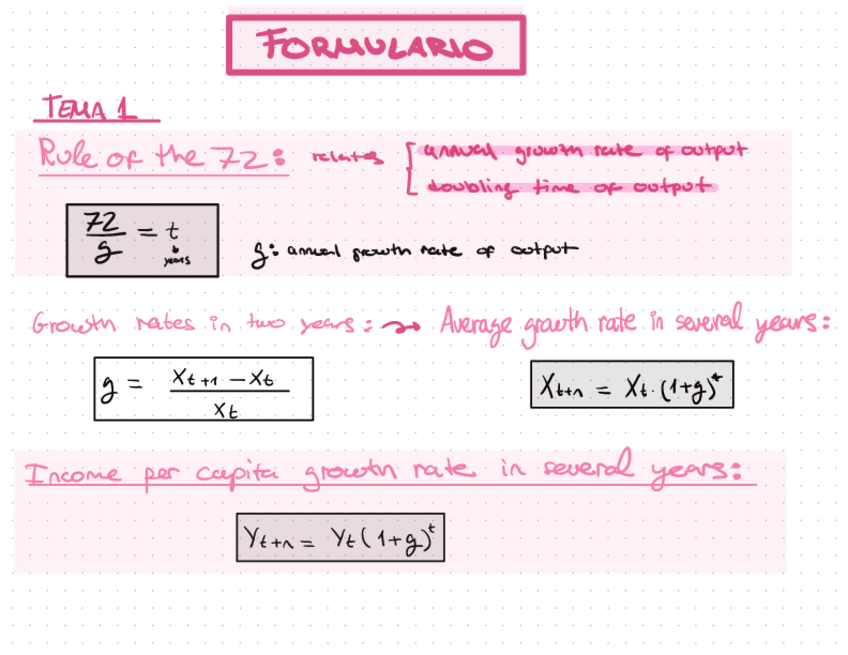 FORMULARIO
TEMA 1
Rule of the 72: relates [ annual growth rate of output
doubling time of output
72/g = t
years
g: annual growth rate of output
Growth rates in two years: → Average growth rate in several years:
g = (X_{t+1} - X_t) / X_t
X_{t+n} = X_t · (1+g)^t
Income per capita growth rate in several years:
Y_{t+n} = Y_t (1+g)^t